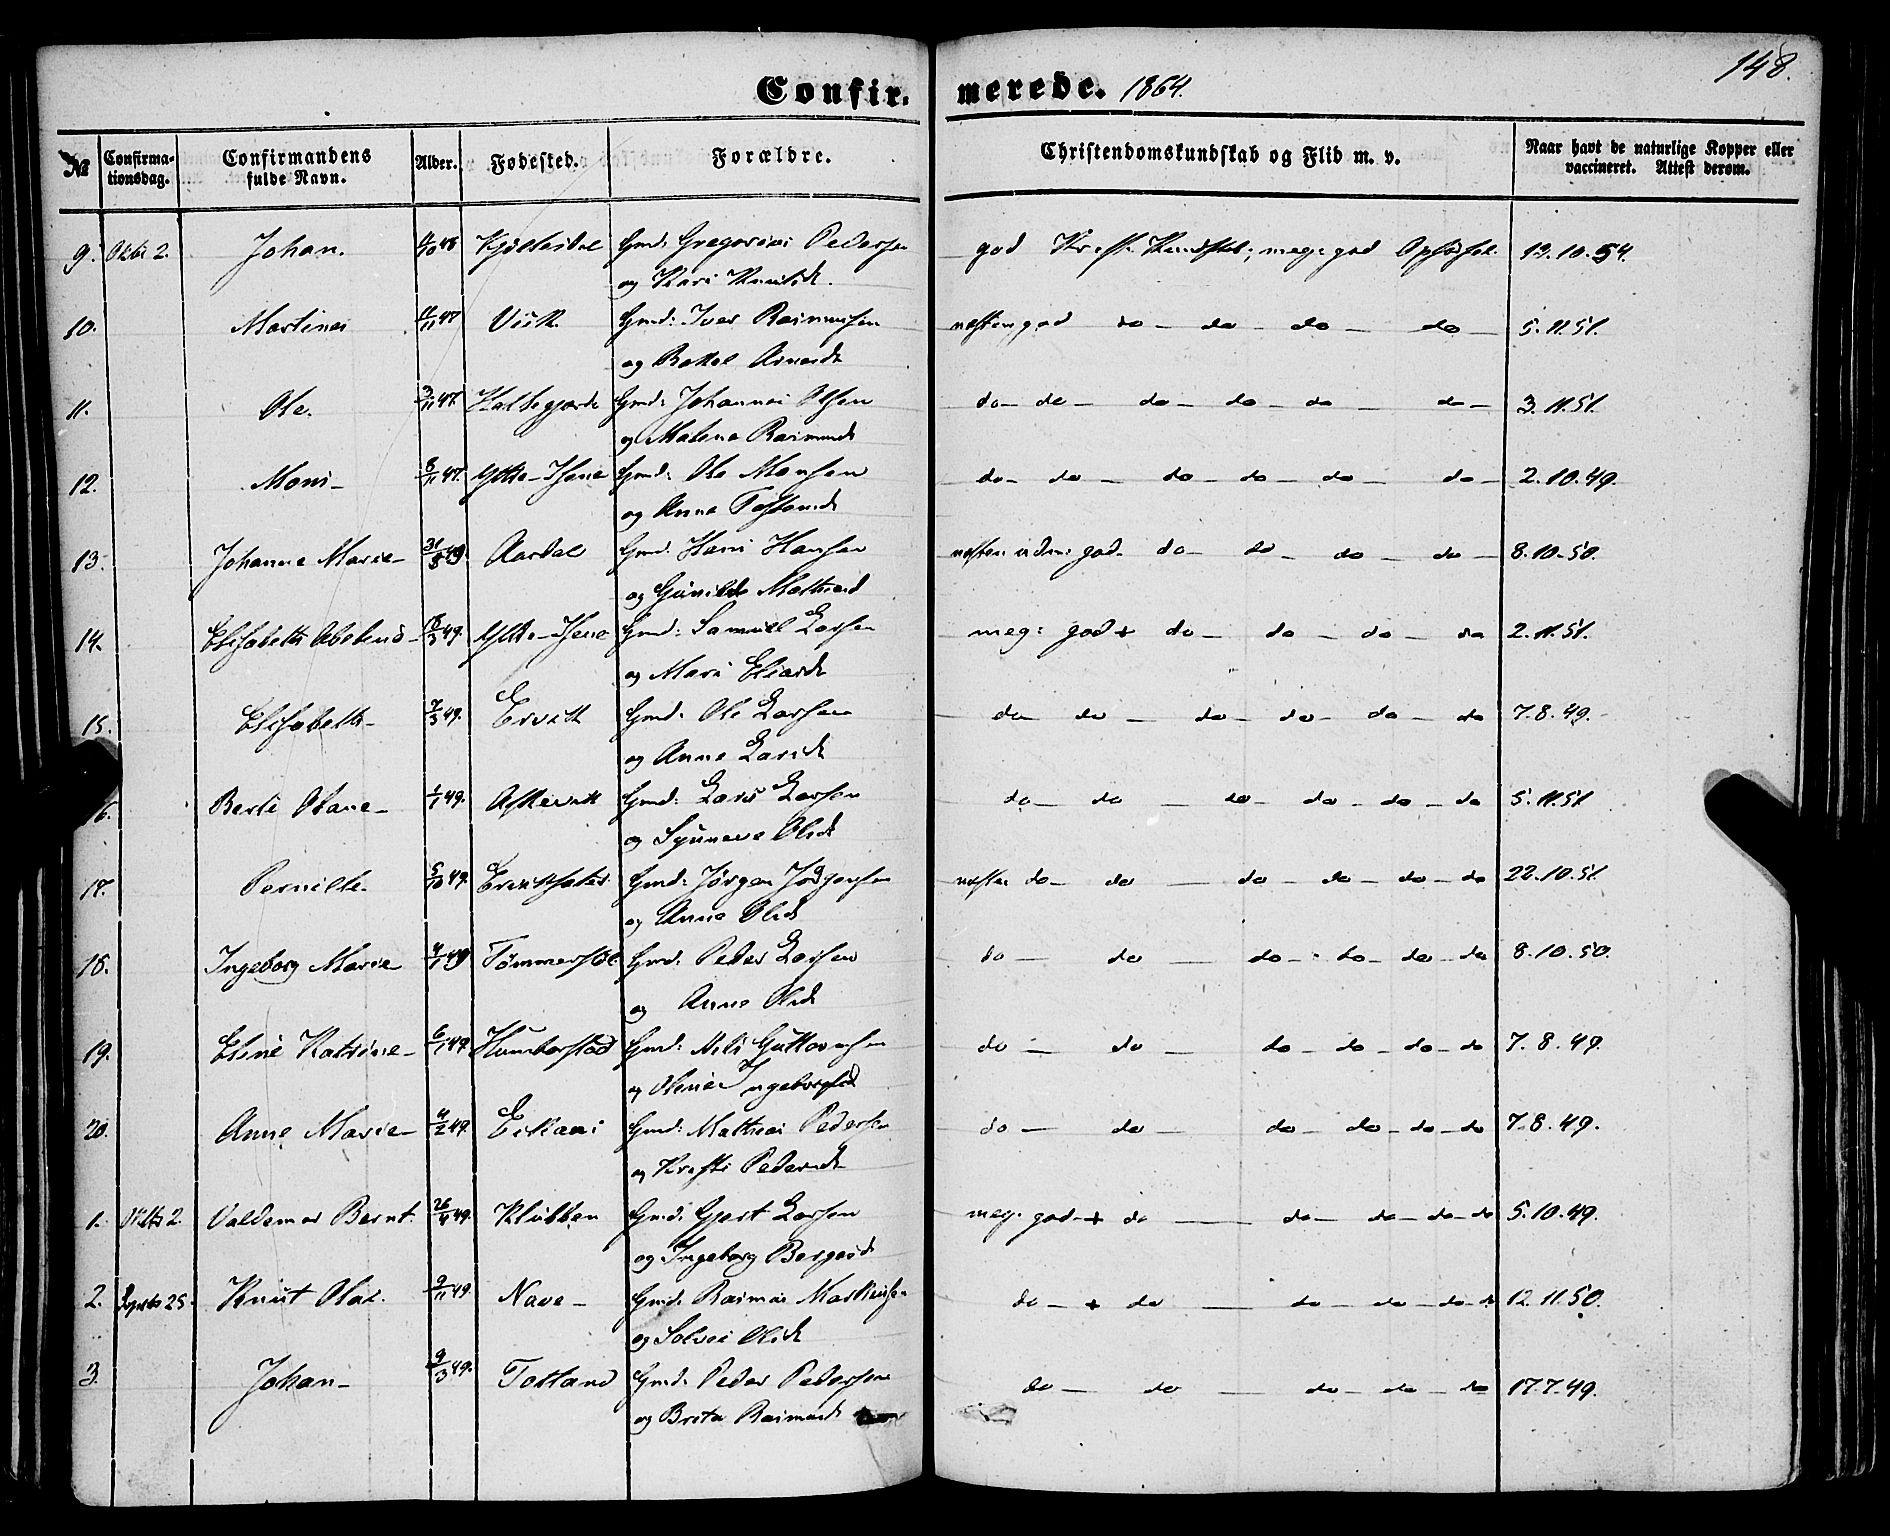 148.
Confir- merede. 1864.
№ Confirma-tionsdag. Confirmandens fulde Navn. Alder. Fødested. Forældre. Christendomskundskab og Flid m. v. Naar havt de naturlige Kopper eller vaccineret. Attest derom.
9. Oktbr 2. Johan. Gmd: Gregorius Pedersen god Krist. Kundskab; meg: god Opførsel. 13.10.54.
og Kari Knutsd.
10. Martinus 47 Viik. Gmd: Iver Rasmussen næsten god do do do do 5.11.51.
og Rakel Arnesdt
11. Ole. 3/11 47 Gmd: Johannes Olsen do do do do do do 3.11.51.
og Malene Rasmusdt
12. Mons 8/11 47. Yttre-Hene Gmd: Ole Monsen do do do do do do 2.10.49.
og Anne Tostensdt
13. Johanne Marie 49. Aardal Gmd: Hans Hansen næsten udm: god do do do do 8.10.50.
og Gunilde Mathiasd
14. Elisabeth 49. Yttre-Hene Gmd: Samuel Larsen meg: god + do do do do 2.11.51.
og Mari Eliasdt
15. Elisabeth 7/3 49. Ervik Gmd: Ole Larsen do do do do do do 7.8.49.
og Anne Larsdt
16. Berte Oline 1/1 49. Askevik Gmd: Lars Larsen do do do do do do 5.11.51
og Synneve Olsdt
17. Pernille 5/10 49. Gmd: Jørgen Jørgensen næsten do do do do do do 22.10.51.
og Anne Olsdt
18. Ingeborg Marie 4/1 49 Tømmerstøl Gmd: Peder Larsen do do do do do do 8.10.50.
og Anne Olsdt
19. Eline Katrine 6/1 49 Humborstad Gmd: Nils Guttormsen do do do do do do 7.8.49.
og Oline Ingeborgsd
20. Anne Marie 4/2 49. Eikaas Gmd: Mathias Pedersen do do do do do do 7.8.49.
og Kristi Pedersdt
1. Oktbr 2. Valdemar Bernt. 26/4 49. Klubben Gmd: Gjert Larsen meg: god + do do do do do 5.10.49.
og Ingeborg Børgesdt
2. Septbr 25. Knut Olai. 9/11 49. Nave Gmd: Rasmus Markussen do + do do do do do 12.11.50.
og Solvei Olsdt
3. Johan 9/3 49. Totland Gmd: Peder Pedersen do do do do do 17.7.49.
og Brita Rasmusdt